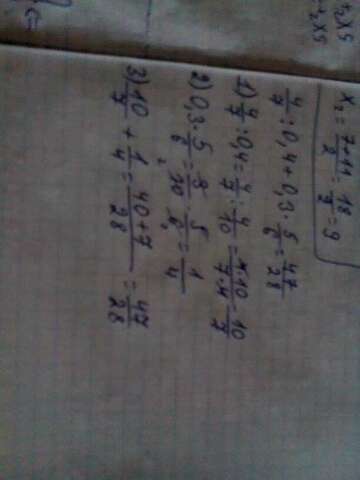 x₂ = 7+11/2 = 18/2 = 9
4/7 : 0,4 + 0,3 · 5/6 = 47/28
1) 4/7 : 0,4 = 4/7 : 4/10 = 4·10/7·4 = 10/7
2) 0,3 · 5/6 = 3/10 · 5/6 = 1/4
3) 10/7 + 1/4 = 40+7/28 = 47/28